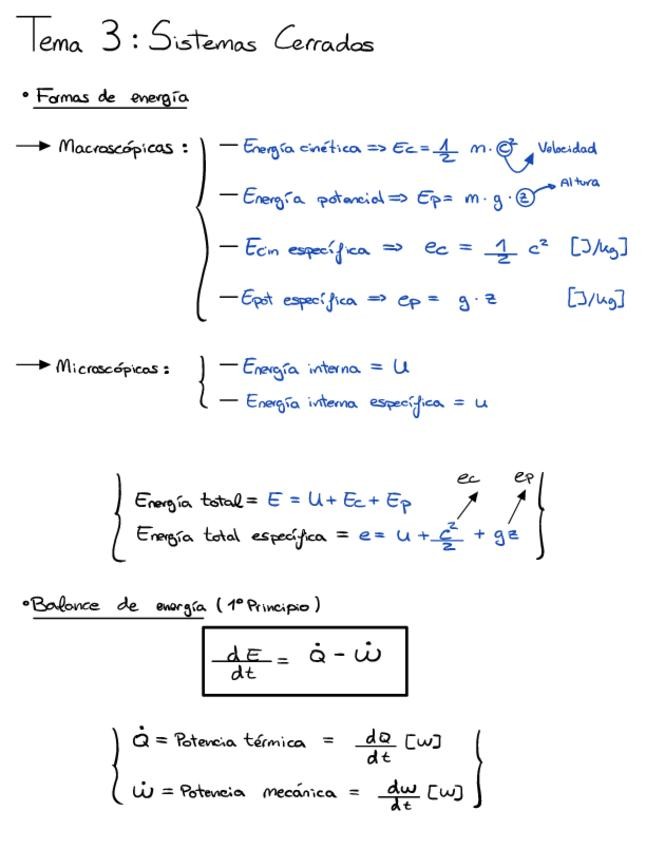 Tema 3: Sistemas Cerrados
• Formas de energía
→ Macroscópicas: { — Energía cinética => Ec = 1/2 m · c² → Velocidad
— Energía potencial => Ep = m · g · z → Altura
— Ecin específica => ec = 1/2 c² [J/kg]
— Epot específica => ep = g · z [J/kg]
→ Microscópicas: { — Energía interna = U
— Energía interna específica = u
ec ep
Energía total = E = U + Ec + Ep
Energía total específica = e = u + c²/2 + gz
• Balance de energía (1º Principio)
dE/dt = Q̇ - Ẇ
Q̇ = Potencia térmica = dQ/dt [W]
Ẇ = Potencia mecánica = dw/dt [W]